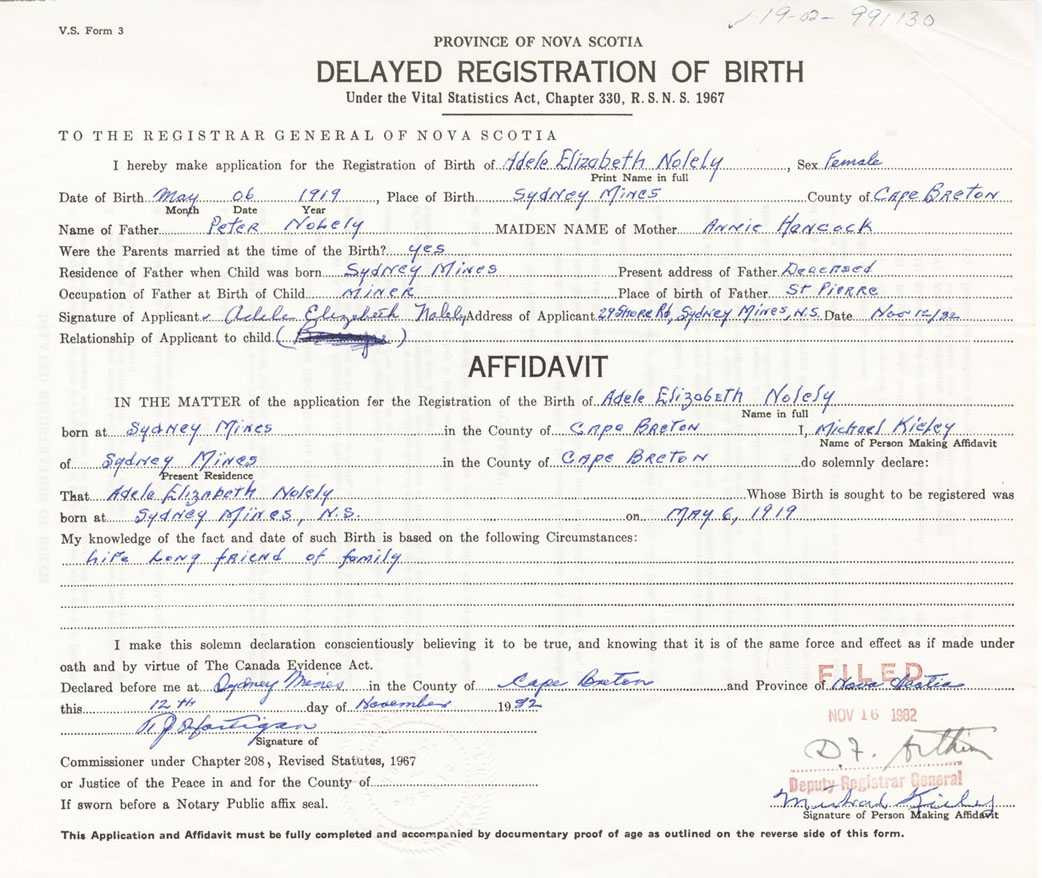 19-02- 991130
V.S. Form 3
PROVINCE OF NOVA SCOTIA
DELAYED REGISTRATION OF BIRTH
Under the Vital Statistics Act, Chapter 330, R. S. N. S. 1967
TO THE REGISTRAR GENERAL OF NOVA SCOTIA
I hereby make application for the Registration of Birth of Adele Elizabeth Nolely, Sex Female
Print Name in full
Date of Birth May 06 1919, Place of Birth Sydney Mines County of Cape Breton
Month Date Year
Name of Father Peter Nolely MAIDEN NAME of Mother Annie Hancock
Were the Parents married at the time of the Birth? yes
Residence of Father when Child was born Sydney Mines Present address of Father Deceased
Occupation of Father at Birth of Child MINER Place of birth of Father St Pierre
Signature of Applicant Adele Elizabeth Nolely Address of Applicant 29 Shore Rd, Sydney Mines, N.S. Date Nov 12/82
Relationship of Applicant to child ( )
AFFIDAVIT
IN THE MATTER of the application for the Registration of the Birth of Adele Elizabeth Nolely
Name in full
born at Sydney Mines in the County of Cape Breton I, Michael Kieley
Name of Person Making Affidavit
of Sydney Mines in the County of Cape Breton do solemnly declare:
Present Residence
That Adele Elizabeth Nolely Whose Birth is sought to be registered was
born at Sydney Mines, N.S. on MAY 6, 1919
My knowledge of the fact and date of such Birth is based on the following Circumstances:
Life Long friend of family
I make this solemn declaration conscientiously believing it to be true, and knowing that it is of the same force and effect as if made under
oath and by virtue of The Canada Evidence Act.
FILED
Declared before me at Sydney Mines in the County of Cape Breton and Province of Nova Scotia
this 12th day of November 1982
NOV 16 1982
Signature of
D. F.
Commissioner under Chapter 208, Revised Statutes, 1967
Deputy Registrar General
or Justice of the Peace in and for the County of
Michael Kieley
If sworn before a Notary Public affix seal.
Signature of Person Making Affidavit
This Application and Affidavit must be fully completed and accompanied by documentary proof of age as outlined on the reverse side of this form.